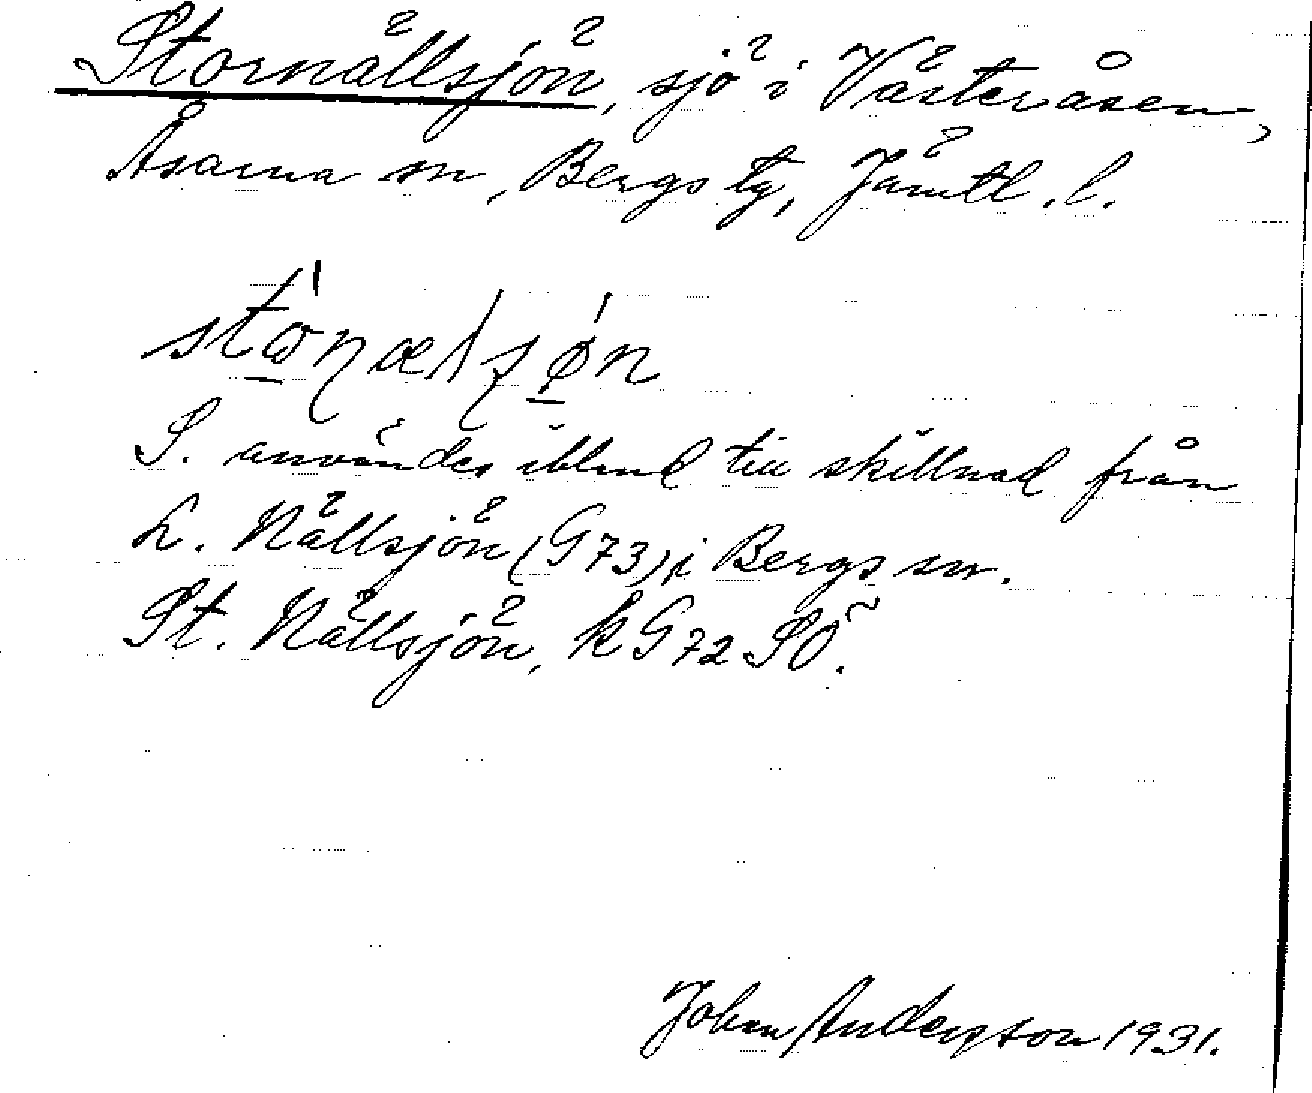 Stornällsjön, sjö i Västeråsen,
Åsarna sn, Bergs tg, Jämtl. l.
S. användes ibland till skillnad från
L. Nällsjön (G73) i Bergs sn.
St. Nällsjön, k G72 SÖ.
Johan Anderson 1931.